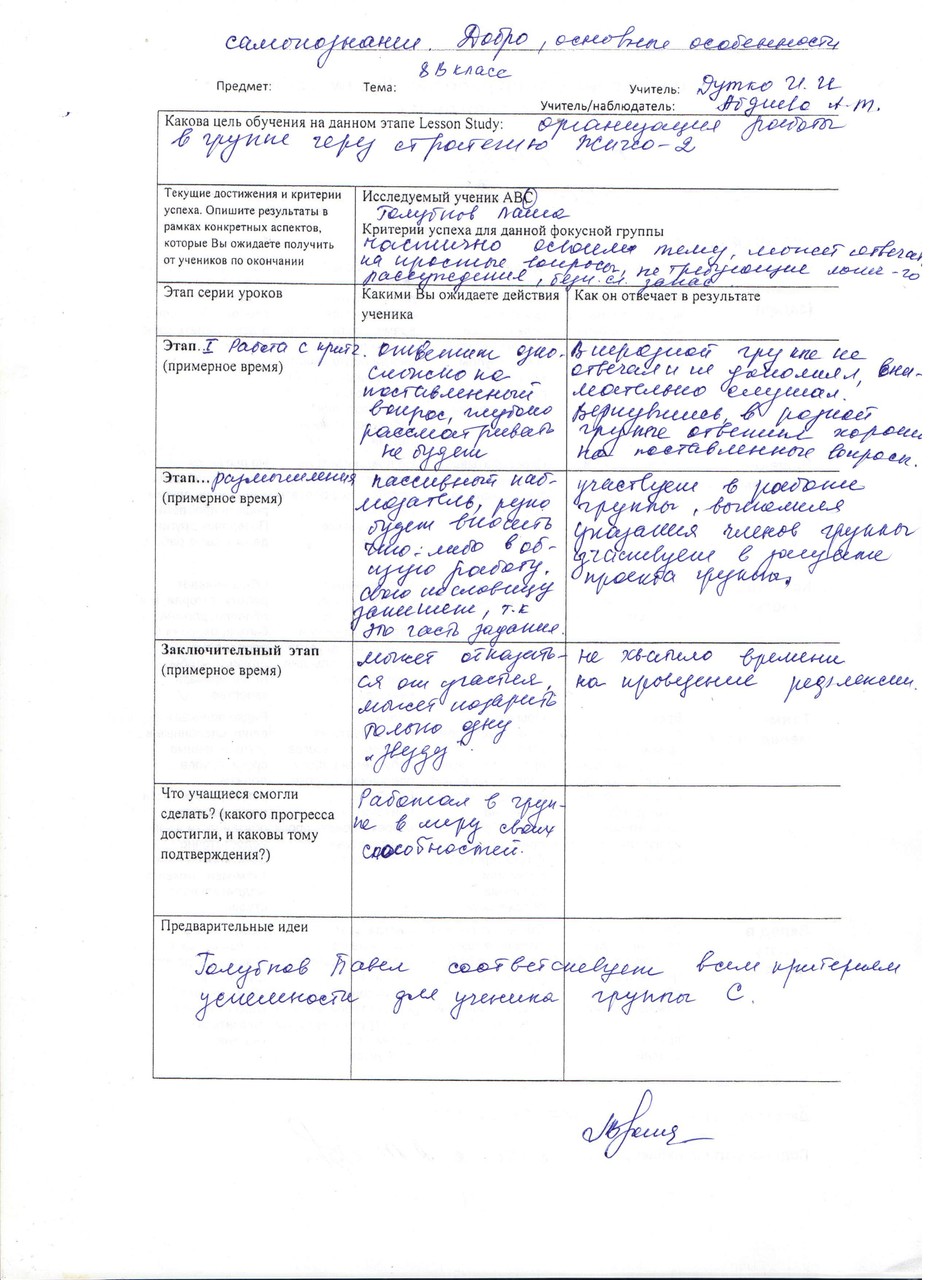 самопознание. Добро, основные особенности
8 В класс
Предмет: Тема: Учитель: Дутко И. И
Учитель/наблюдатель: Абдиева А. Т.
Какова цель обучения на данном этапе Lesson Study: организация работы
в группе через стратегию Жигсо-2
Текущие достижения и критерии
успеха. Опишите результаты в
рамках конкретных аспектов,
которые Вы ожидаете получить
от учеников по окончании
Исследуемый ученик ABC
Паша
Критерии успеха для данной фокусной группы
частично освоил тему, может отвечат
на простые вопросы, не требующие
рассуждения, сл. запас
Этап серии уроков
Какими Вы ожидаете действия
ученика
Как он отвечает в результате
Этап..I Работа с
(примерное время)
ответит одно-
сложно на
поставленный
вопрос, глубоко
рассматривать
не будет
В неродной группе не
отвечал и не дополнял, вни-
мательно слушал.
Вернувшись, в родной
группе ответил хорошо
на поставленные вопросы.
Этап... размышления
(примерное время)
пассивный наб-
людатель, редко
будет вносить
что-либо в об-
щую работу.
Свою пословицу
запишет, т.к
это часть задания.
участвует в работе
группы, выполняя
указания членов группы
участвует в защите
проекта группы.
Заключительный этап
(примерное время)
может отказать-
ся от участия,
может подарить
только одну
„звезду“.
не хватило времени
на проведение рефлексии.
Что учащиеся смогли
сделать? (какого прогресса
достигли, и каковы тому
подтверждения?)
Работал в груп-
пе в меру своих
способностей.
Предварительные идеи
Павел соответствует всем критериям
успешности для ученика группы С.